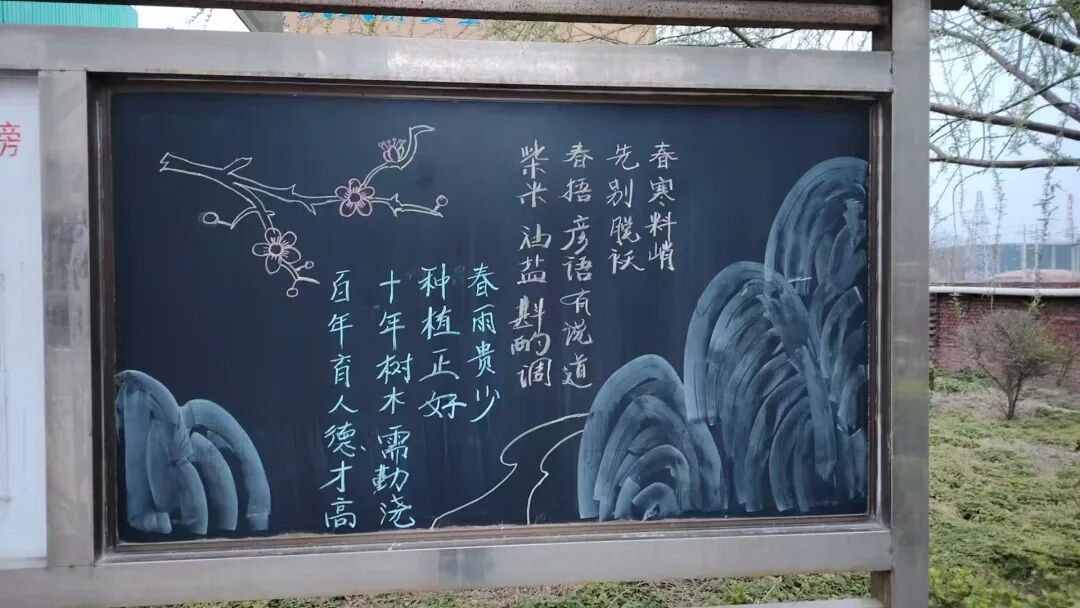 春寒料峭
先别脱袄
春捂彦语有说道
柴米油盐斟酌调
春雨贵少
种植正好
十年树木需勤浇
百年育人德才高